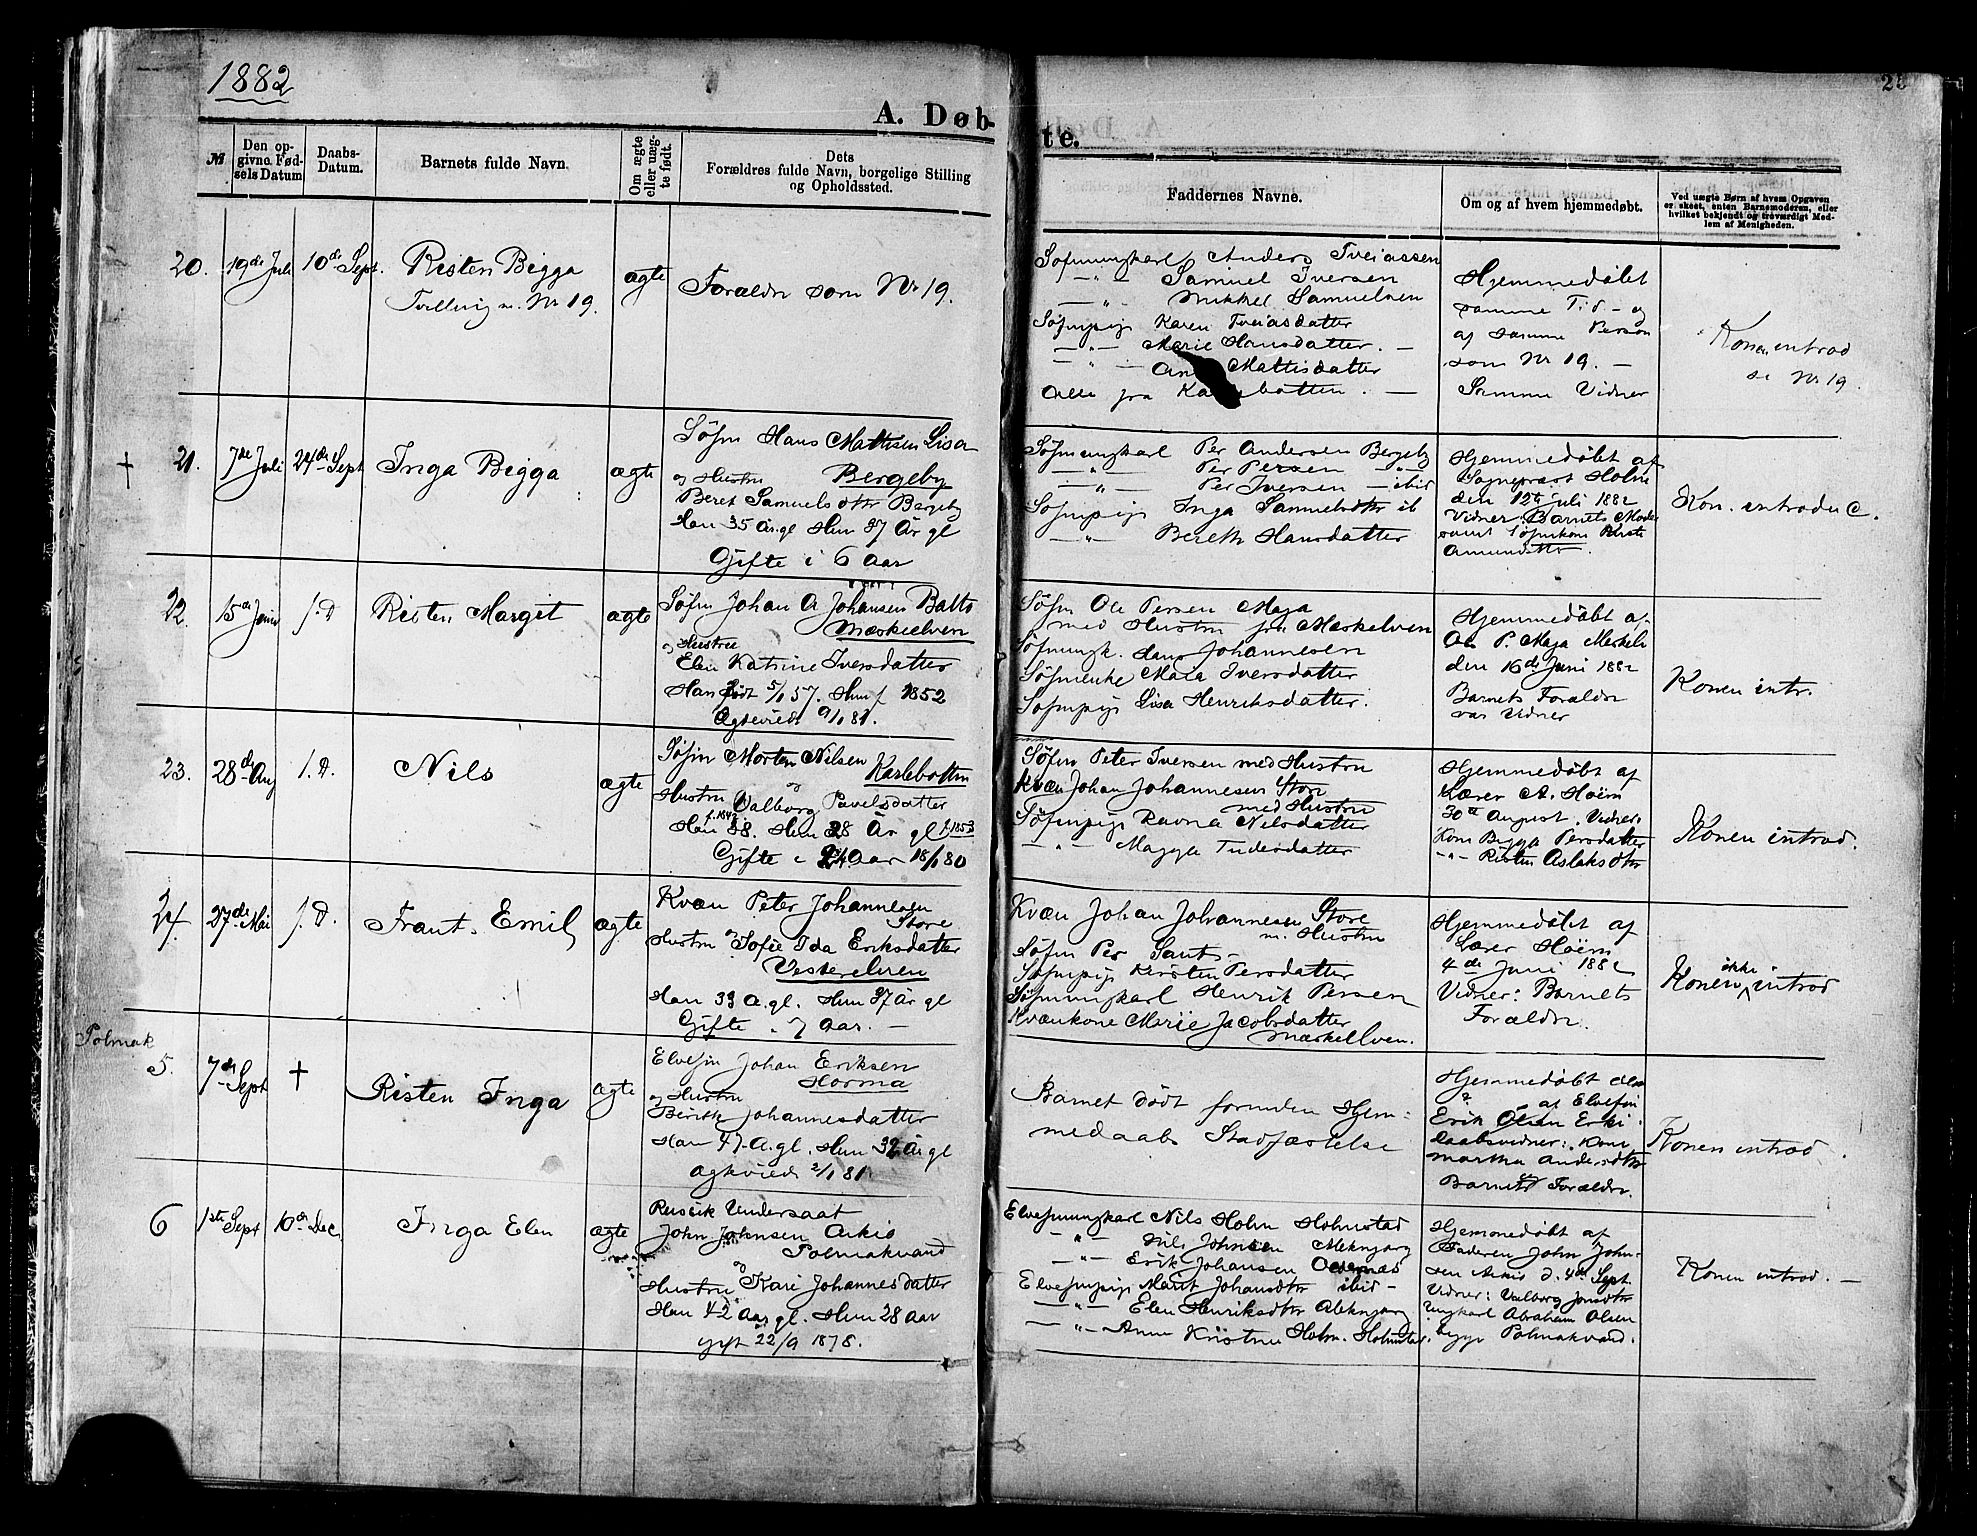 1882
25
A. Døb-
te.
№
Den op-
givne Fød-
sels Datum
Daabs-
Datum.
Barnets fulde Navn.
Om ægte
eller uæg-
te født.
Dets
Forældres fulde Navn, borgelige Stilling
og Opholdssted.
Faddernes Navne.
Om og af hvem hjemmedøbt.
Ved uægte Børn af hvem Opgaven
er skeet, enten Barnemoderen, eller
hvilket bekjendt og troværdigt Med-
lem af Menigheden.
20.
19de Juli
10de Sept.
Risten Bigga
Tvilling m. No 19.
ægte
Forældre som No 19.
Søfinungkarl Anders Tveiassen
—"— Samuel Iversen
—"— Mikkel Samuelsen
Søfinpige Karen Tveiasdatter
—"— Marie Hansdatter. —
—"— Mattisdatter
Alle fra
Hjemmedøbt
samme Tid - og
af samme Person
som No 19. —
Samme Vidner
Konen introd
se No 19.
†
21.
7de Juli
24de Sept
Inga Bigga
ægte
Søfin Hans Mathisen Lisa
og Hustru Bergeby
Beret Samuelsdttr Bergeby
Han 35 Aar gl Hun 37 År gl
Gifte i 6 Aar
Søfinungkarl Per Andersen Bergeby
—"— Per Persen —"—
—"— Per Iversen — ibid
Søfinpige Inga Samuelsdttr ib
—"— Bereth Hansdatter
Hjemmedøbt af
Sognepræst Holm
den 12te juli 1882
Vidner: Barnets Moder
samt Søfinkone
Kon. introduc.
22.
15de Juni
s. D
Risten Margit
ægte
Søfin Johan A Johansen Batto
Mæskelven
og Hustru
Elen Katrine Iversdatter
Han født 5/1 57. Hun f 1852
Ægteviede 9/1 81.
Søfin Ole Persen Maja
med Hustru fra Mæskelven
Søfinungk. Hans Johannesen
Søfinenke Maja Iversdatter
Søfinpige Lisa Henriksdatter.
Hjemmedøbt af
Ole P. Maja Meskelv
den 16de Juni 1882
Barnets Forældre
var Vidner
Konen intr.
23.
28de Aug
s. D.
Nils
ægte
Søfin Morten Nilsen Karlebotten
og
Hustru Valborg Pavelsdatter
f. 1842
Han 38. Hun 28 År gl f. 1853
Gifte i Aar 18/1 80
Søfin Peter Iversen med Hustru
Kvæn Johan Johannesen Store
med Hustru
Søfinpige Ravna Nilsdatter
—"— Magga Tudesdatter
Hjemmedøbt af
Lærer A. Hoëm
30te August. Vidner:
Kone Bigga Persdatter
—"— Risten Aslaksdttr
Konen introd.
24.
27de Mai
s. D.
Frant. Emil
ægte
Kvæn Peter Johannesen
Store
Hustru og Sofie Ida Eriksdatter
Vesterelven
Han 33 A. gl. Hun 37 År gl
Gifte 7 Aar. —
Kvæn Johan Johannesen Store
m. Hustru
Søfin Per Saut-
Søfinpige Kirsten Persdatter
Søfinungkarl Henrik Persen
Kvænkone Marie Jacobsdatter
Mæskelven.
Hjemmedøbt af
Lærer Hoëm
4de Juni 1882
Vidner: Barnets
Forældre.
Konen ikke introd
Polmak
5.
7de Sept
†
Risten Inga
ægte
Elvefin Johan Eriksen
Horma
og Hustru
Berith Johannesdatter
Han 47 A. gl. Hun 32 År gl
ægteviede 2/1 81.
Barnet dødt forinden Hjem=
medaabs Stadfæstelse
Hjemmedøbt den
? af Elvefin
Erik Olsen Erki.
Daabsvidner: Kone
Martha Andersdttr
Barnets Forældre.
Konen introd.
6
1ste Sept
10de Dec.
Inga Elen
ægte
Russisk Undersaat
John Johnsen Arkio
Polmakvand
og
Hustru Kari Johannesdatter
Han 42 Aar gl. Hun 28 Aar
gift 22/9 1878.
Elvefinungkarl Nils Holm Holmestad
—"— Nils Johnsen Aleknjarg
—"— Erik Johansen
Elvefinpige Marit Johansdttr ibid —
—"— Elen Henriksdttr Aleknjarg
—"— Anne Kristine Holm. Holmestad.
Hjemmedøbt af
Faderen John John-
sen Arkio d. 4de Sept.
Vidner: Valborg Jonsdttr
Ungkarl Abraham Olsen
begge Polmakvand.
Konen introd. —